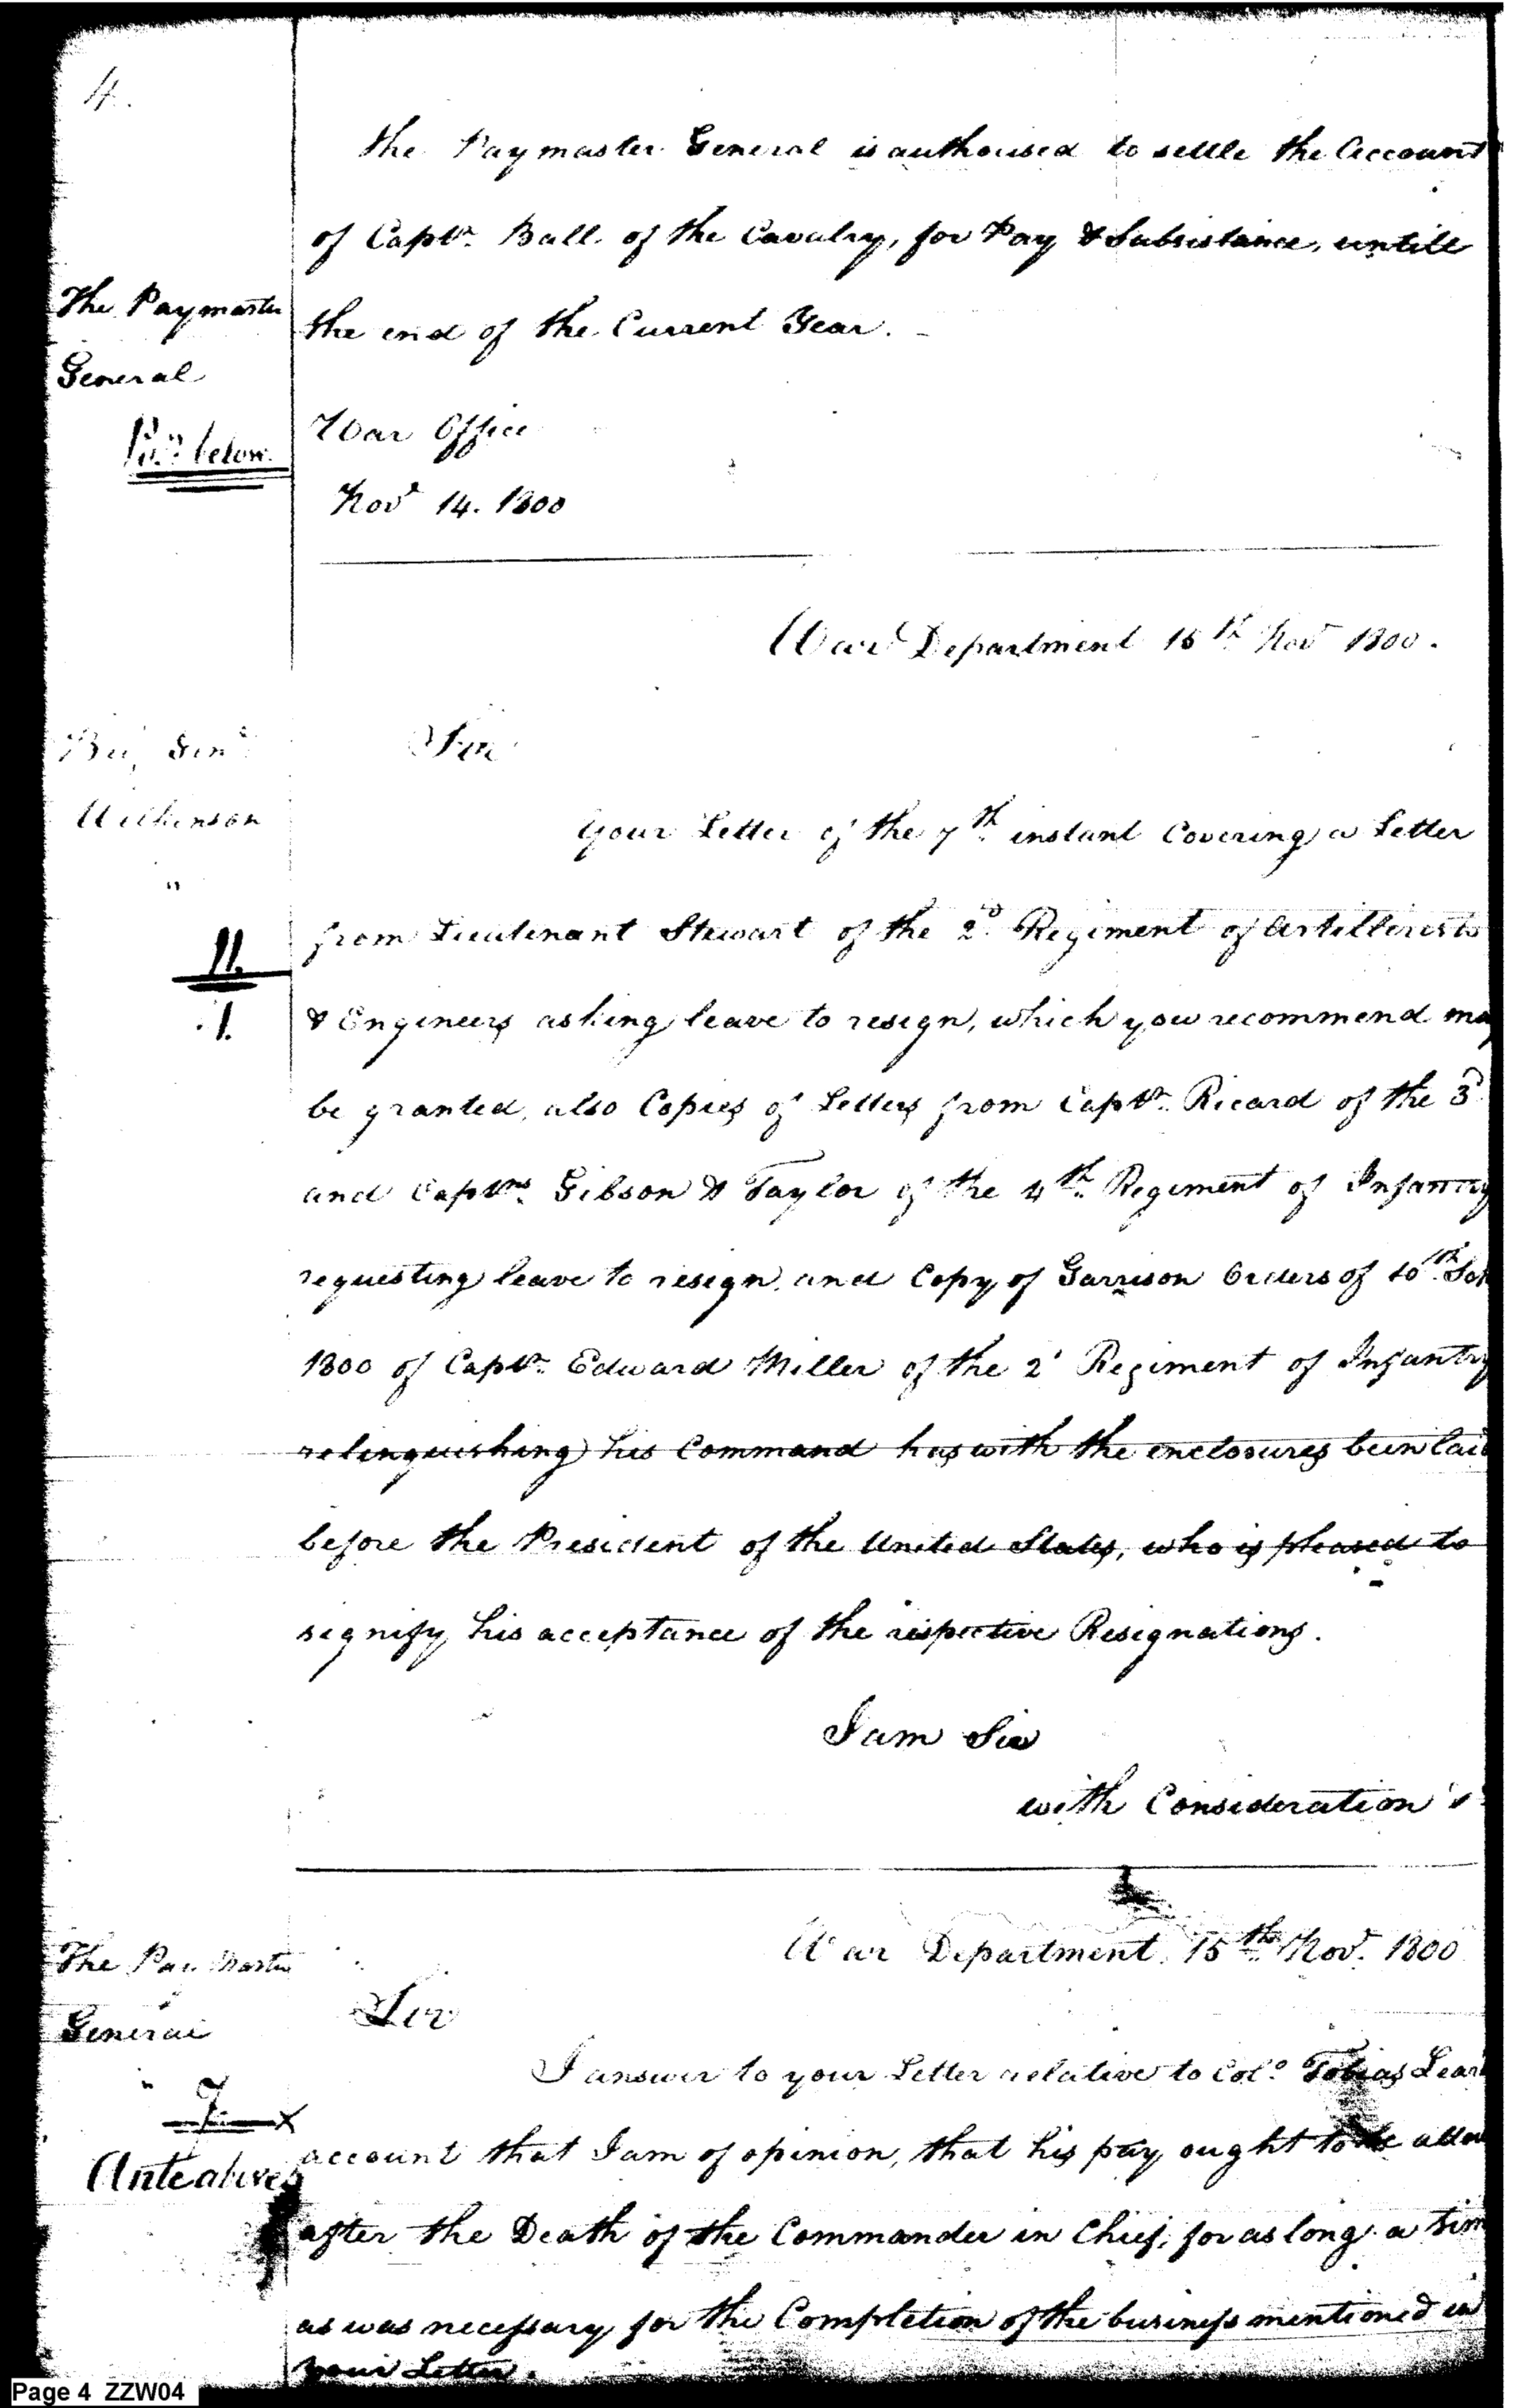 4.
the Paymaster General is authorised to settle the Account
of Capt. Ball of the Cavalry, for Pay & Subsistance, untill
The Paymaster
the end of the Current Year.
General
War Office
below.
Nov 14. 1800
War Department 15th Nov 1800.
Brig Genl
Sir
Wilkinson
Your Letter of the 7th instant Covering a Letter
"
from Lieutenant Stewart of the 2d Regiment of Artillerists
11.
1.
& Engineers asking leave to resign, which you recommend may
be granted, also Copies of Letters from Capt. Ricard of the 3d
and Capts. Gibson & Taylor of the 4th Regiment of Infantry
requesting leave to resign, and Copy of Garrison Orders of 10th
1800 of Capt. Edward Miller of the 2d Regiment of Infantry
relinquishing his Command has with the enclosures been laid
before the President of the United States, who is pleased to
signify his acceptance of the respective Resignations.
I am Sir
with Consideration
War Department 15th Nov. 1800
The Pay Master
Sir
General
"
I answer to your Letter relative to Colo. Tobias Lear
7 x
account that I am of opinion, that his pay ought to be
Ante above
after the Death of the Commander in Chief, for as long a time
as was necessary for the Completion of the business mentioned in
your Letter.
Page 4 ZZW04